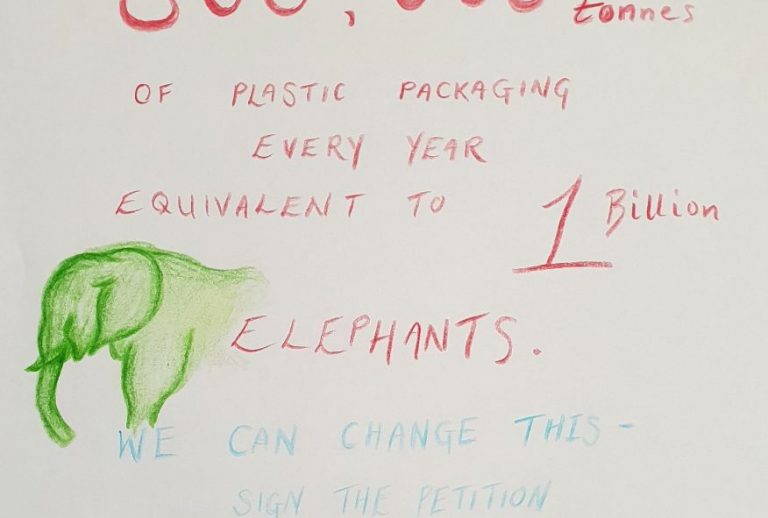 tonnes
OF PLASTIC PACKAGING
EVERY YEAR
EQUIVALENT TO 1 Billion
ELEPHANTS.
WE CAN CHANGE THIS -
SIGN THE PETITION